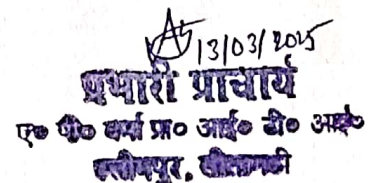 13/03/2025
प्रभारी प्राचार्य
ए० पी० वर्मा प्रा० आई० टी० आई०
सीतामढ़ी